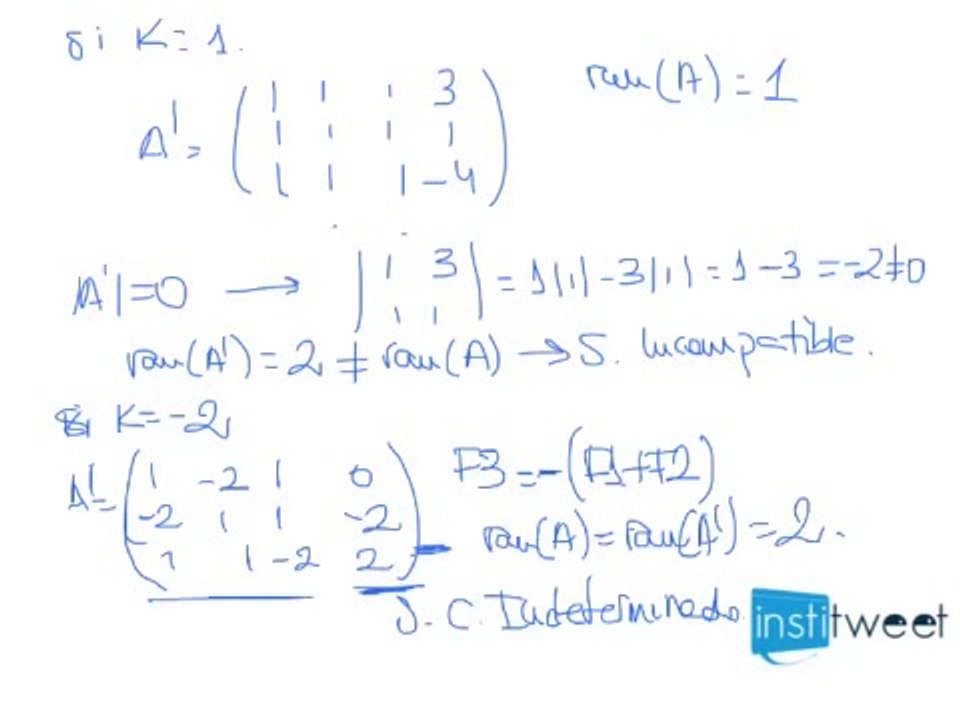 Si K=1.
ran(A)=1
A'= ( 1 1 1 3
1 1 1 1
1 1 1 -4 )
|A'|=0 → | 1 3 | = 1|1| - 3|1| = 1-3 = -2≠0
1 1
ran(A')=2≠ran(A) → S. Incompatible.
Si K=-2
A'= ( 1 -2 1 0
-2 1 1 -2
1 1 -2 2 )
F3=-(F1+F2)
ran(A)=ran(A')=2.
S.C. Indeterminado.
institweet